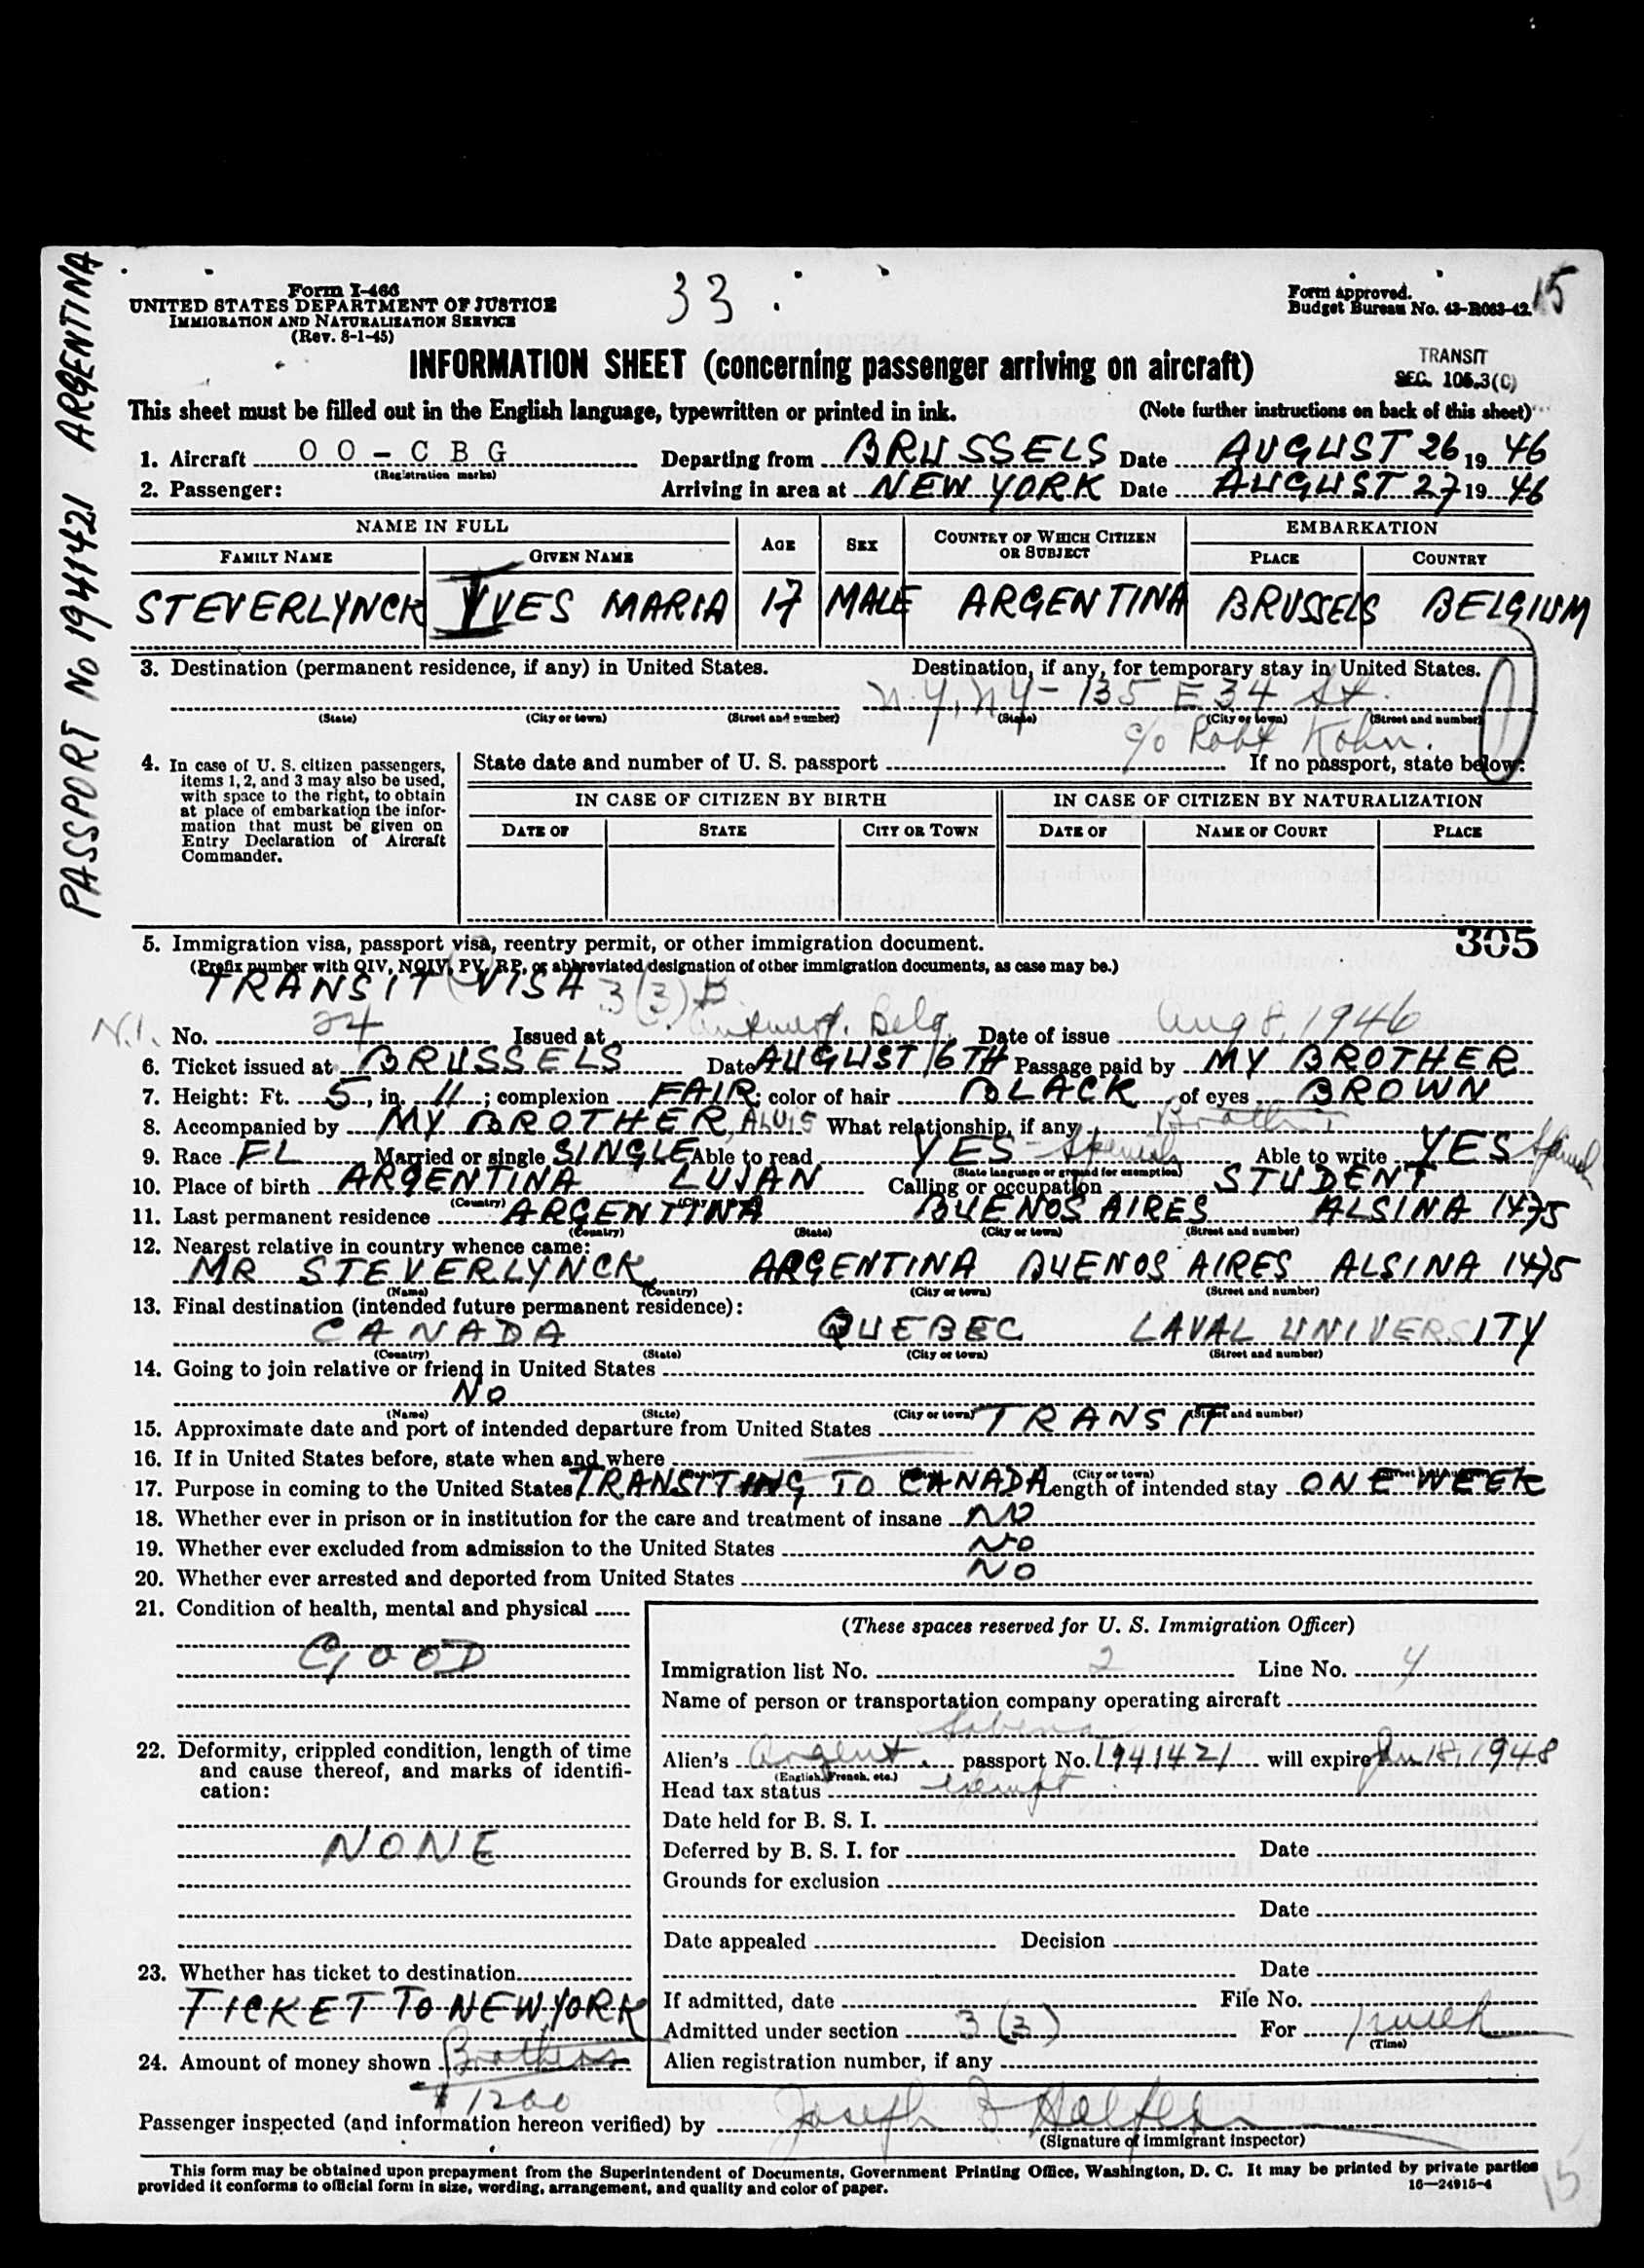 PASSPORT No 1941421 ARGENTINA
Form I-466
UNITED STATES DEPARTMENT OF JUSTICE
IMMIGRATION AND NATURALIZATION SERVICE
(Rev. 8-1-45)
33
Form approved.
Budget Bureau No. 43-R063-42.
15
INFORMATION SHEET (concerning passenger arriving on aircraft)
TRANSIT
SEC. 105.3(C)
This sheet must be filled out in the English language, typewritten or printed in ink. (Note further instructions on back of this sheet)
1. Aircraft OO-CBG Departing from BRUSSELS Date AUGUST 26 19 46
(Registration marks)
2. Passenger: Arriving in area at NEW YORK Date AUGUST 27 19 46
NAME IN FULL AGE SEX COUNTRY OF WHICH CITIZEN OR SUBJECT EMBARKATION
FAMILY NAME GIVEN NAME PLACE COUNTRY
STEVERLYNCK YVES MARIA 17 MALE ARGENTINA BRUSSELS BELGIUM
3. Destination (permanent residence, if any) in United States. Destination, if any, for temporary stay in United States.
N.Y, NY - 135 E 34 St.
(State) (City or town) (Street and number) (State) (City or town) (Street and number)
c/o Robt Kohn.
4. In case of U. S. citizen passengers, items 1, 2, and 3 may also be used, with space to the right, to obtain at place of embarkation the information that must be given on Entry Declaration of Aircraft Commander.
State date and number of U. S. passport If no passport, state below:
IN CASE OF CITIZEN BY BIRTH IN CASE OF CITIZEN BY NATURALIZATION
DATE OF STATE CITY OR TOWN DATE OF NAME OF COURT PLACE
305
5. Immigration visa, passport visa, reentry permit, or other immigration document.
(Prefix number with QIV, NQIV, PV, RP, or abbreviated designation of other immigration documents, as case may be.)
TRANSIT VISA 3(3)
N.I. No. 24 Issued at Antwerp. Belg. Date of issue Aug 8, 1946
6. Ticket issued at BRUSSELS Date AUGUST 16TH Passage paid by MY BROTHER
7. Height: Ft. 5, in. 11; complexion FAIR; color of hair BLACK of eyes BROWN
8. Accompanied by MY BROTHER, ALUIS What relationship, if any Brother
9. Race FL Married or single SINGLE Able to read YES - Spanish Able to write YES Spanish
(State language or ground for exemption)
10. Place of birth ARGENTINA LUJAN Calling or occupation STUDENT
(Country) (City)
11. Last permanent residence ARGENTINA BUENOS AIRES ALSINA 1475
(Country) (State) (City or town) (Street and number)
12. Nearest relative in country whence came:
MR STEVERLYNCK ARGENTINA BUENOS AIRES ALSINA 1475
(Name) (Country) (City or town) (Street and number)
13. Final destination (intended future permanent residence):
CANADA QUEBEC LAVAL UNIVERSITY
(Country) (State) (City or town) (Street and number)
14. Going to join relative or friend in United States
NO
(Name) (State) (City or town) (Street and number)
15. Approximate date and port of intended departure from United States TRANSIT
16. If in United States before, state when and where
(City or town)
17. Purpose in coming to the United States TRANSITING TO CANADA Length of intended stay ONE WEEK
18. Whether ever in prison or in institution for the care and treatment of insane NO
19. Whether ever excluded from admission to the United States NO
20. Whether ever arrested and deported from United States NO
21. Condition of health, mental and physical
GOOD
22. Deformity, crippled condition, length of time and cause thereof, and marks of identification:
NONE
23. Whether has ticket to destination
TICKET TO NEW YORK
24. Amount of money shown Brothers
$1200
(These spaces reserved for U. S. Immigration Officer)
Immigration list No. 2 Line No. 4
Name of person or transportation company operating aircraft
Sabena
Alien's Argent. passport No. 1941421 will expire Jan 18, 1948
(English, French, etc.)
Head tax status exempt
Date held for B. S. I.
Deferred by B. S. I. for Date
Grounds for exclusion
Date
Date appealed Decision
Date
If admitted, date File No.
Admitted under section 3 (3) For 1 week
(Time)
Alien registration number, if any
Passenger inspected (and information hereon verified) by Joseph
(Signature of immigrant inspector)
This form may be obtained upon prepayment from the Superintendent of Documents, Government Printing Office, Washington, D. C. It may be printed by private parties
provided it conforms to official form in size, wording, arrangement, and quality and color of paper.
16—24915-4
15